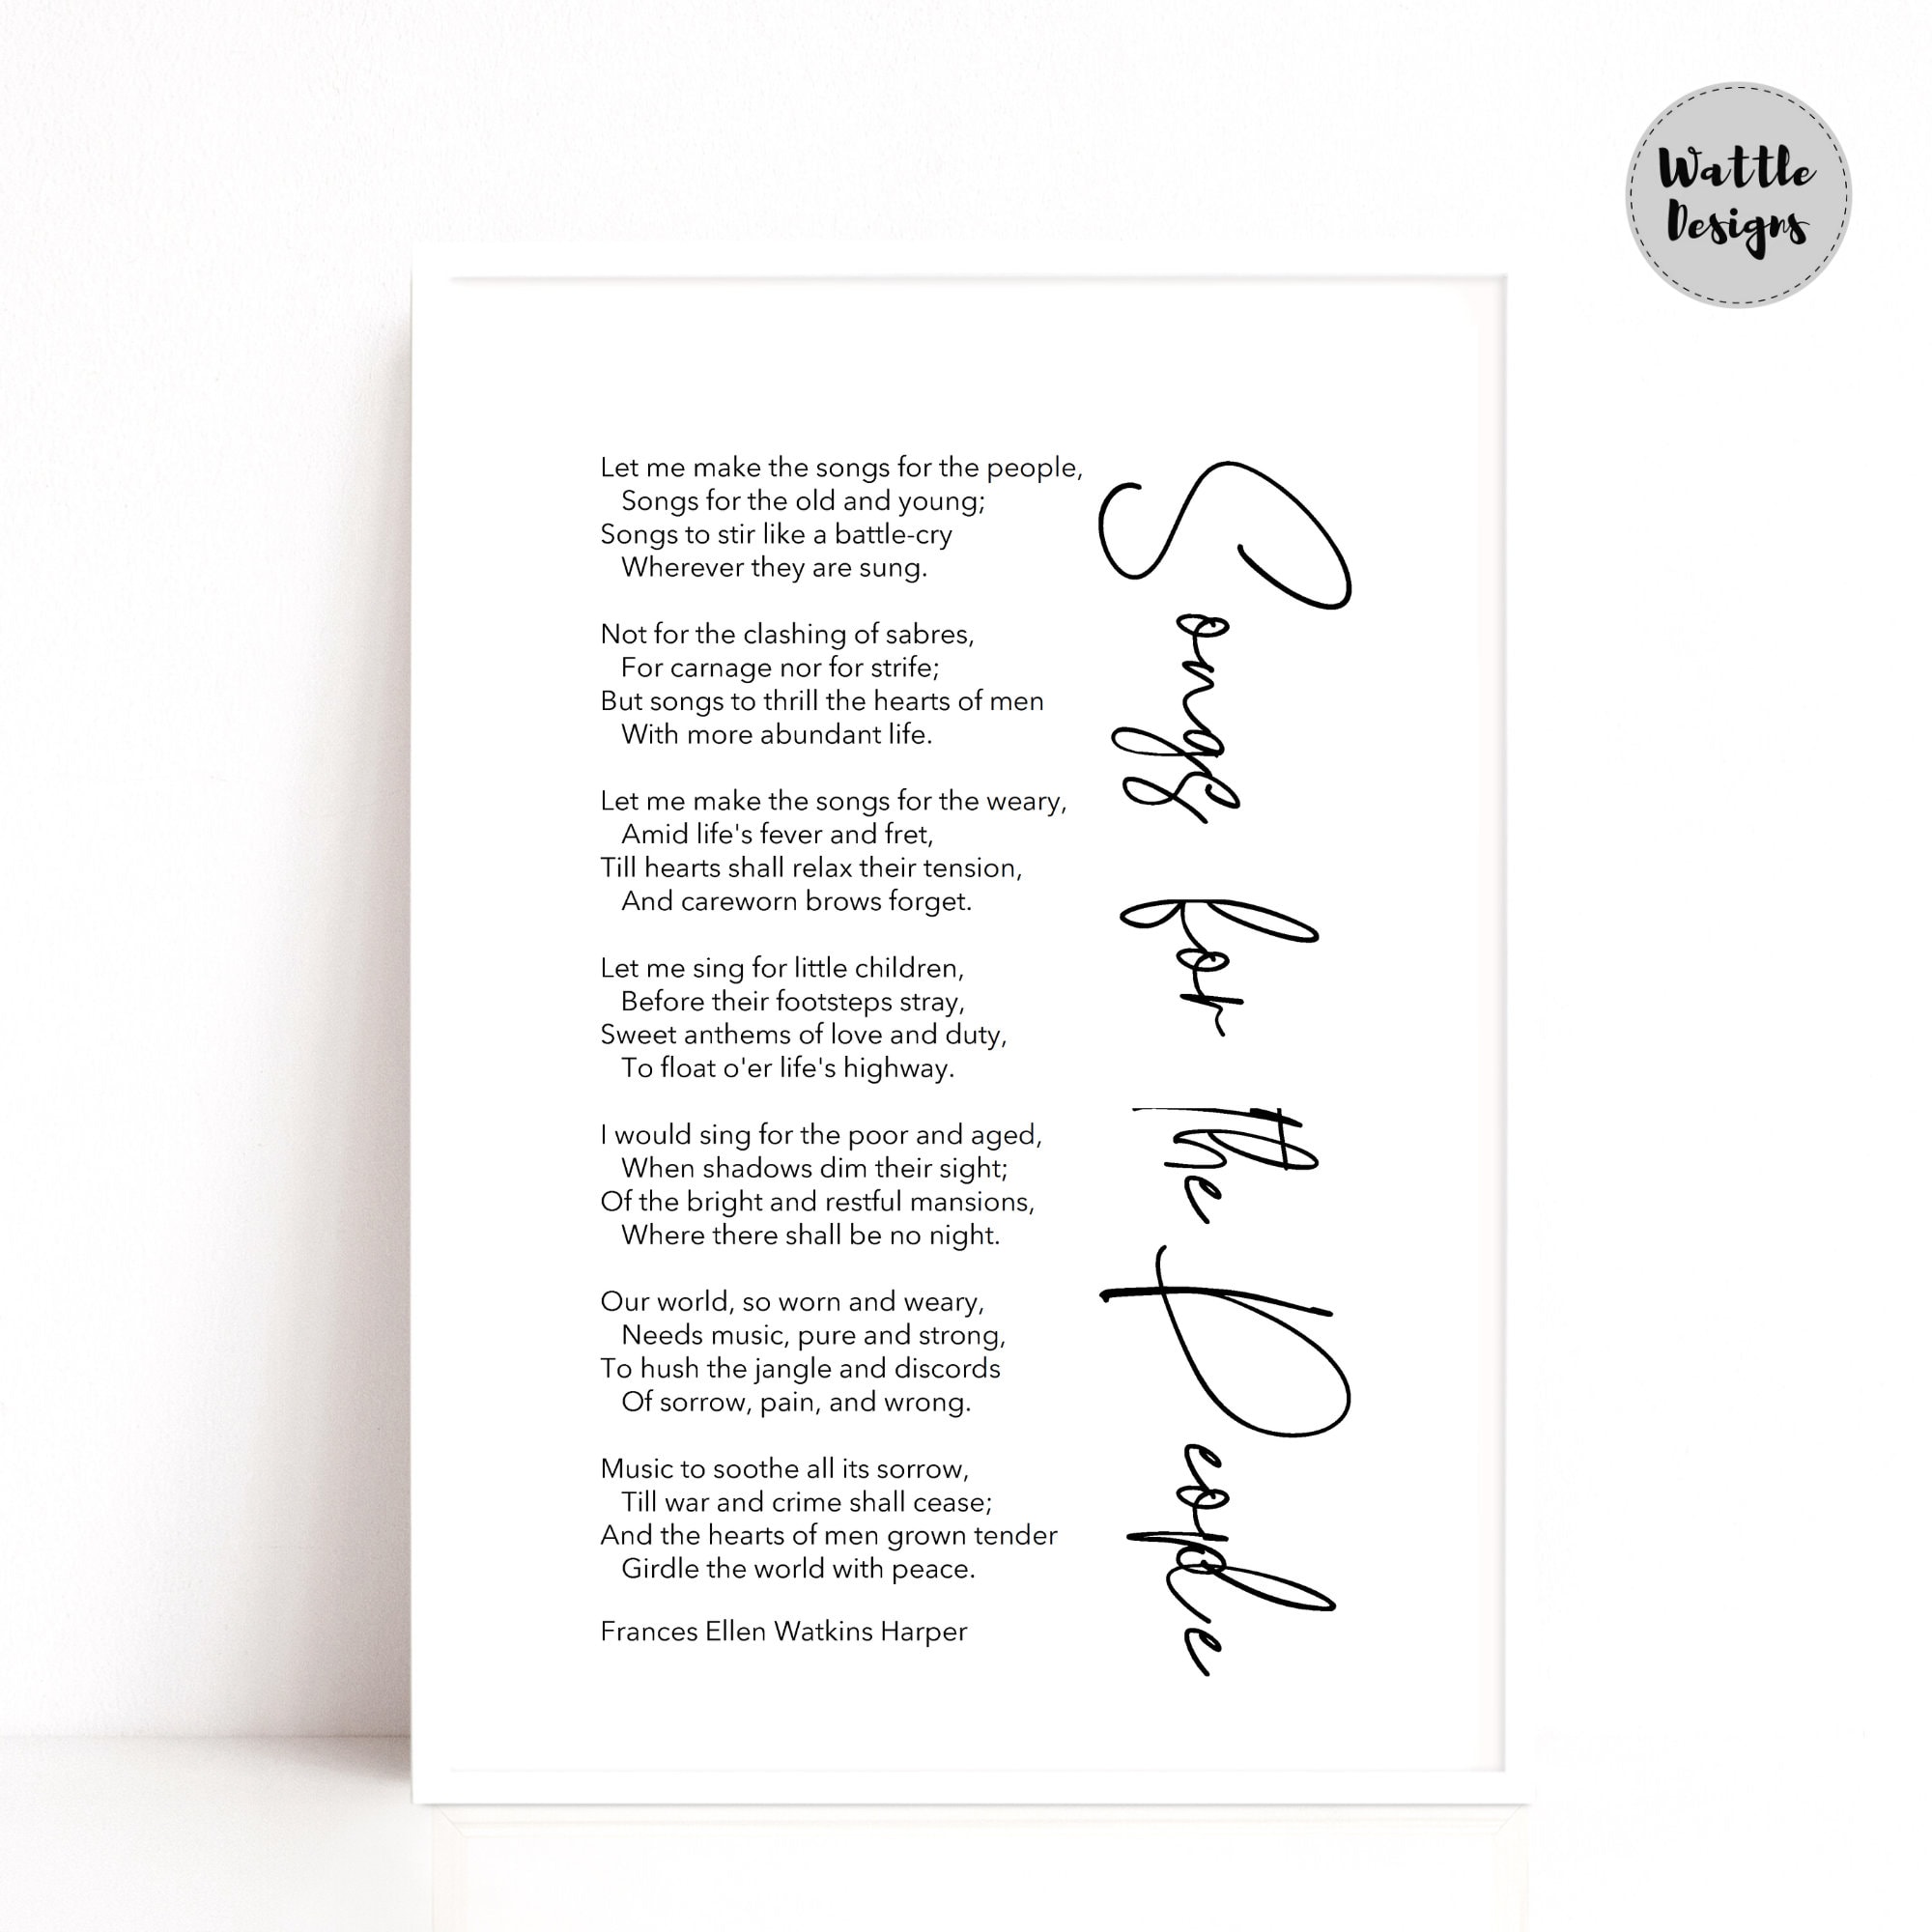 Wattle
Designs
Let me make the songs for the people,
Songs for the old and young;
Songs to stir like a battle-cry
Wherever they are sung.
Not for the clashing of sabres,
For carnage nor for strife;
But songs to thrill the hearts of men
With more abundant life.
Let me make the songs for the weary,
Amid life's fever and fret,
Till hearts shall relax their tension,
And careworn brows forget.
Let me sing for little children,
Before their footsteps stray,
Sweet anthems of love and duty,
To float o'er life's highway.
I would sing for the poor and aged,
When shadows dim their sight;
Of the bright and restful mansions,
Where there shall be no night.
Our world, so worn and weary,
Needs music, pure and strong,
To hush the jangle and discords
Of sorrow, pain, and wrong.
Music to soothe all its sorrow,
Till war and crime shall cease;
And the hearts of men grown tender
Girdle the world with peace.
Frances Ellen Watkins Harper
Songs for the People